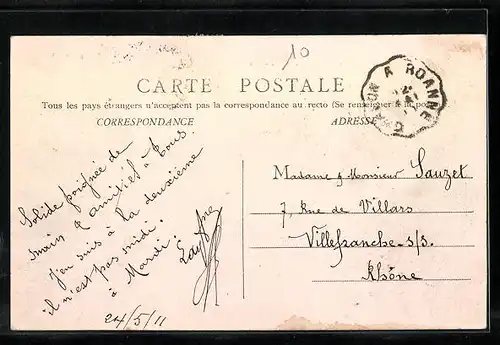 10
CARTE POSTALE
Tous les pays étrangers n'acceptent pas la correspondance au recto (Se renseigner à la pos
CORRESPONDANCE
ADRESSE
A ROANNE
Solide poignée de
main & amitiés à tous.
J'en suis à la deuxième
il n'est pas midi.
à Mardi.
24/5/11
Madame & Monsieur Sauzet
7, Rue de Villars
Villefranche-s/s.
Rhône